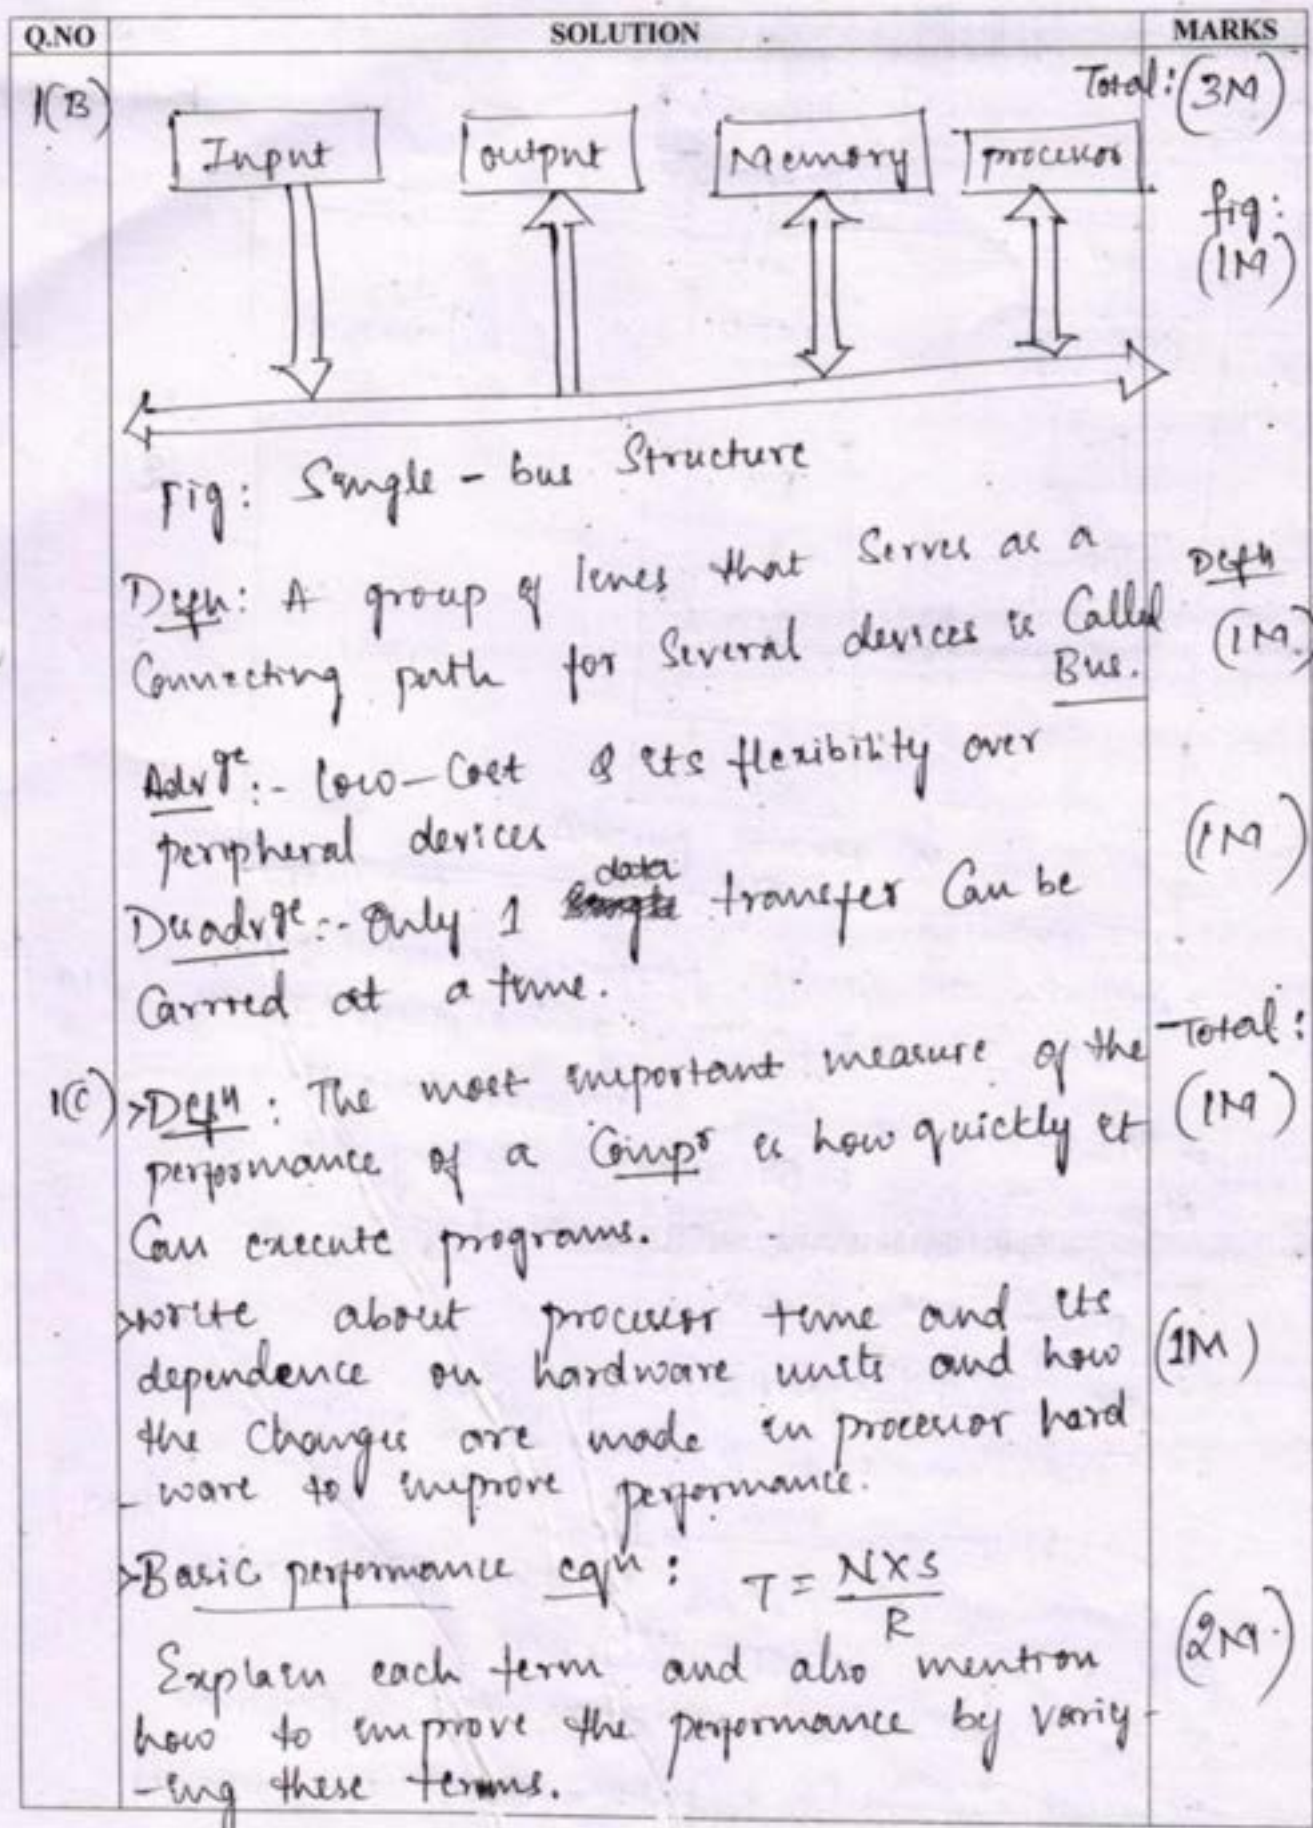 Q.NO SOLUTION MARKS
1(B) Total: (3M)
Input output Memory processor
fig:
(1M)
Fig: Single - bus Structure
Defn: A group of lines that Serves as a Defn
Connecting path for Several devices is Called (1M)
Bus.
Advge:- low-Cost & its flexibility over
peripheral devices (1M)
data
Disadvge:- Only 1 transfer Can be
Carried at a time.
Total:
1(C) >Defn: The most important measure of the (1M)
performance of a Compr is how quickly it
Can execute programs.
>write about processor time and its
dependence on hardware units and how (1M)
the Changes are made in processor hard
- ware to improve performance.
>Basic performance eqn: T = N X S / R
(2M)
Explain each term and also mention
how to improve the performance by vary-
-ing these terms.